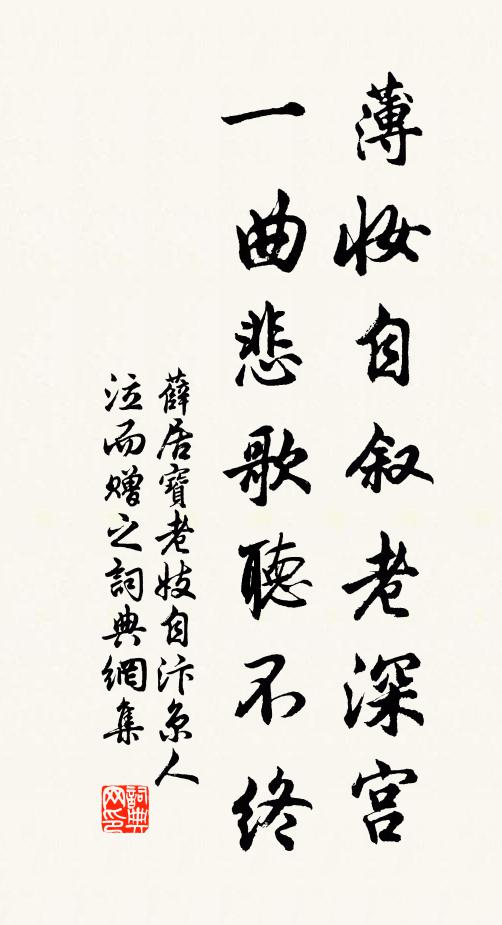 薄妆自叙老深宫
一曲悲歌聽不终
薛居寶老妓自汴京人
泣而赠之詞典網集
詞典网印